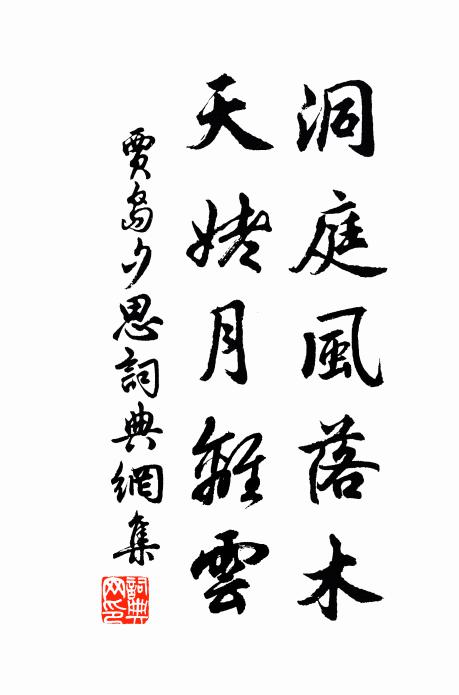 洞庭風落木
天姥月離雲
賈島夕思詞典網集
詞典網印